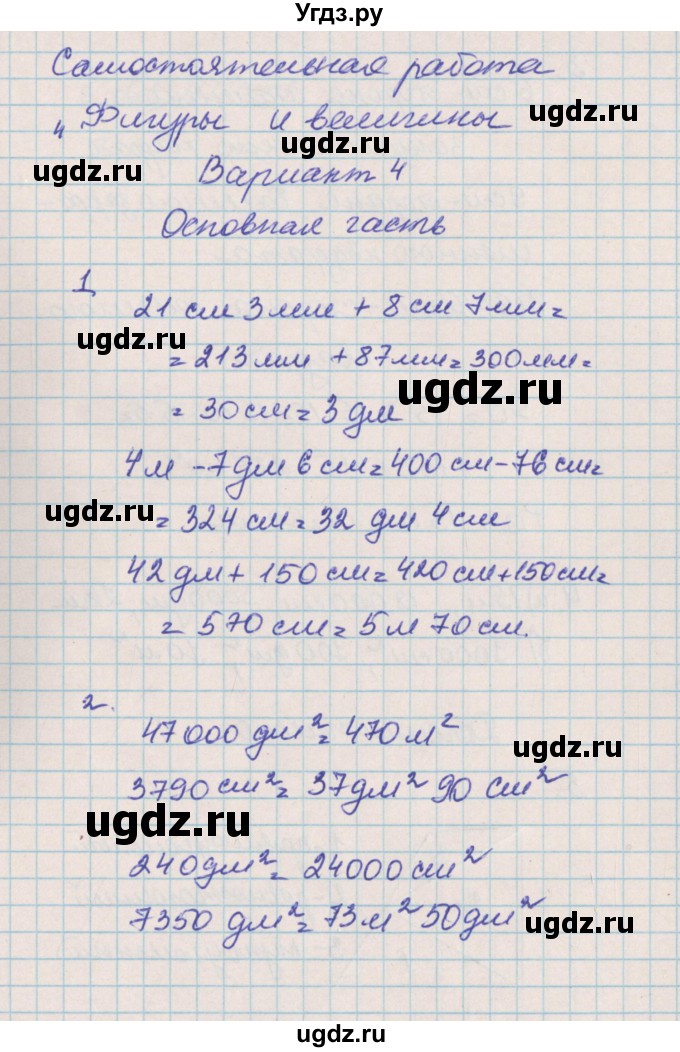 Угдз.ру
Самостоятельная работа
„Фигуры и величины
ugdz.ru
ugdz.ru
Вариант 4
Основная часть
1.
21 см 3 мм + 8 см 7 мм =
ugdz.ru
= 213 мм + 87 мм = 300 мм =
ugdz.ru
= 30 см = 3 дм
4 м - 7 дм 6 см = 400 см - 76 см =
ugdz.ru
= 324 см = 32 дм 4 см
42 дм + 150 см = 420 см + 150 см =
= 570 см = 5 м 70 см.
2.
47000 дм² = 470 м²
ugdz.ru
3790 см² = 37 дм² 90 см²
ugdz.ru
240 дм² = 24000 см²
7350 дм² = 73 м² 50 дм²
ugdz.ru
ugdz.ru